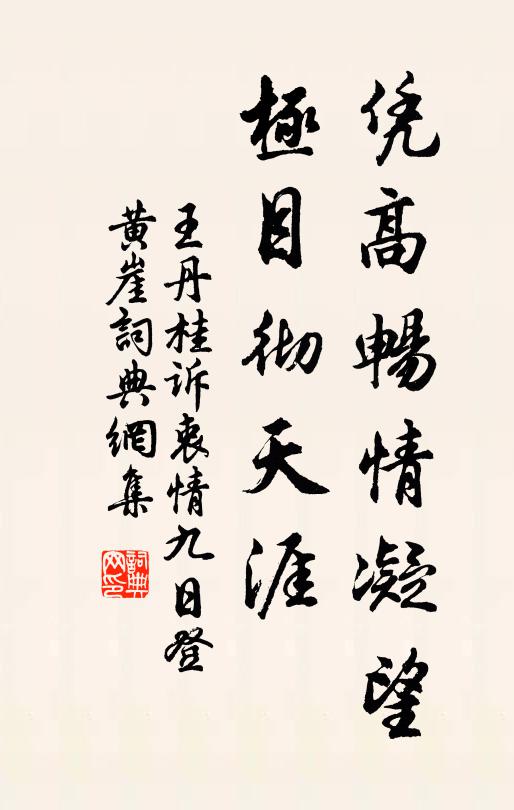 凭高暢情凝望
極目彻天涯
王丹桂诉衷情九日登
黄崖詞典網集
詞典网印